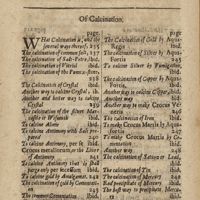 Of Calcination.
page.
WHat Calcination is, and the
several ways thereof, 235
The calcination of common salt, 237
The calcination of Salt-Petre, ibid.
The calcination of Vitriol ibid.
The calcination of the Pumice-stone,
238
The Calcination of Crystal ibid.
Another way to calcine Crystal ib.
Another and better way to calcine
Crystal ibid.
The calcination of
ibid.
To calcine Alom ibid.
To calcine Antimony with Salt-petre
240
To calcine Antimony, per se ibid.
Crocus metallorum, or the Liver
of Antimony 241
To calcine Antimony that it shall
purge only per secessum. ibid.
To calcine gold by Amalgama. 242
The calcination of gold by Cementation
243
page.
The Calcination of Gold by Aqua-
Regis ibid.
The calcination of Silver by Aqua-
Fortis ibid.
To calcine Silver by Fumigation,
ibid.
The calcination of Copper by Aqua-
Fortis ibid.
Another way to calcine Copper, ibid.
Another way ibid.
Another way to make Crocus Veneris
ibid.
The calcination of Iron ibid.
To make Crocus Martis by Aqua-
fortis 247
To make Crocus Martis by
ibid.
Another ibid.
The calcination of Saturn or Lead,
ibid.
The calcination of Tin ibid.
The calcination of Mercury ibid.
Red precipitate of Mercury ibid.
The best way to precipitate Mercury